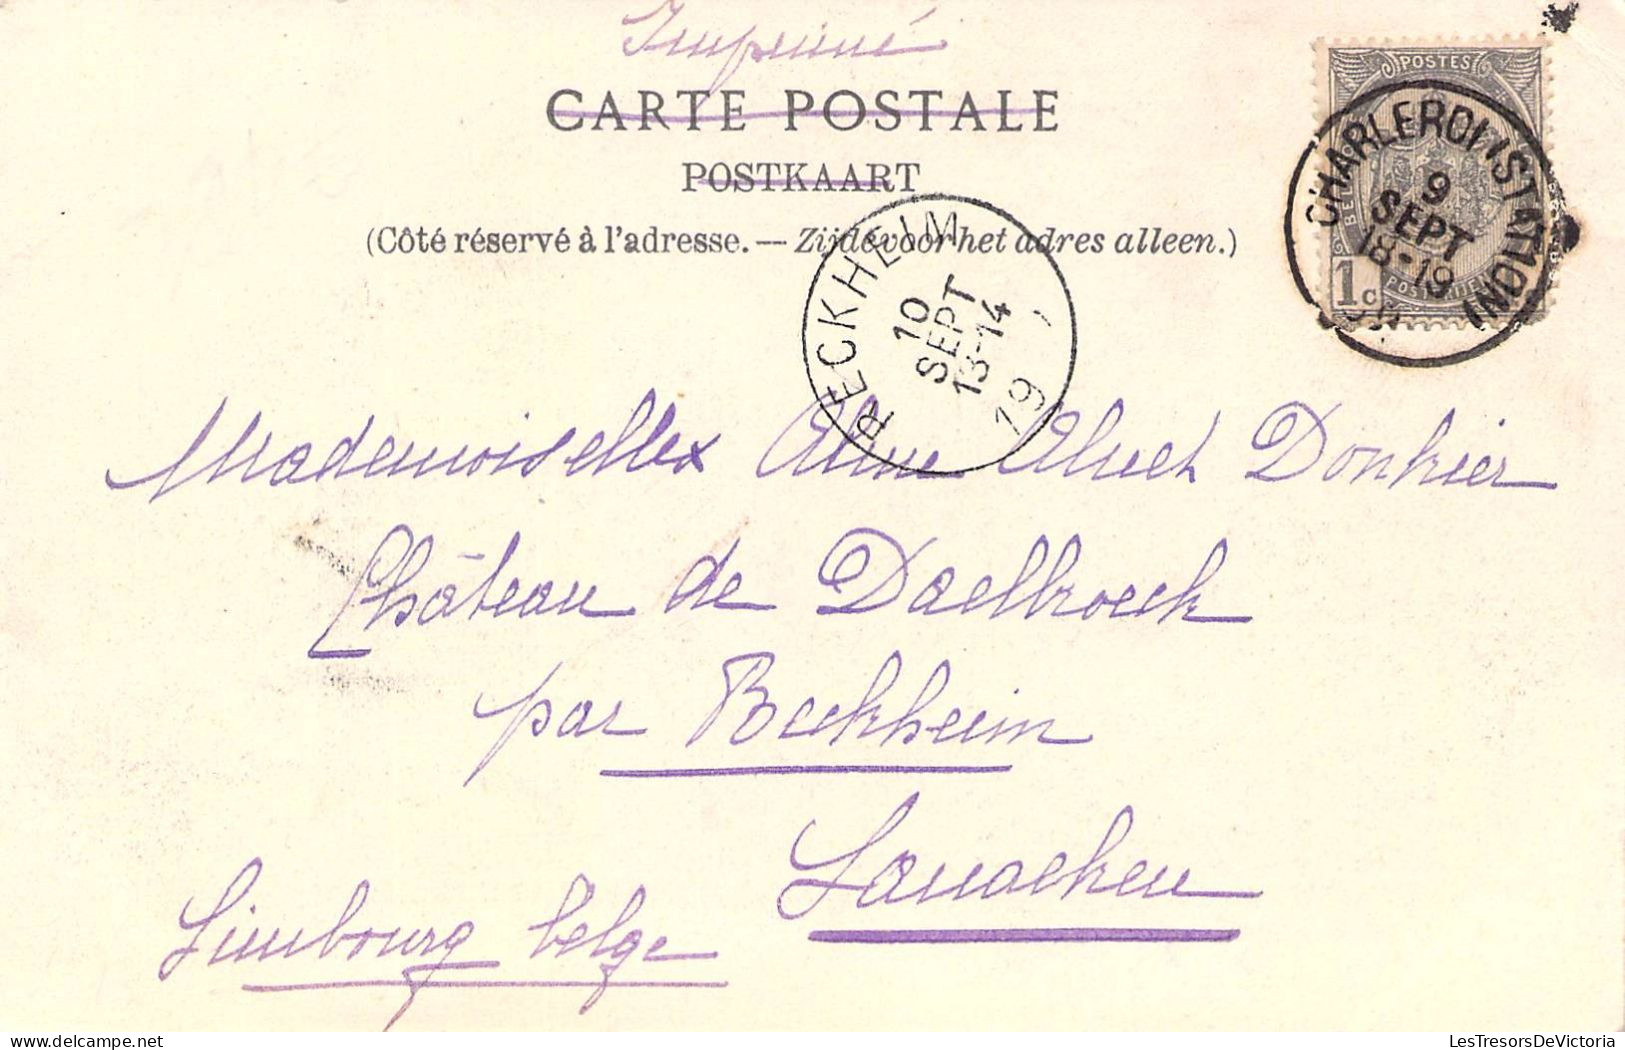 Imprimé
CARTE POSTALE
POSTKAART
(Côté réservé à l'adresse. — Zijde voor het adres alleen.)
POSTES
1 c
CHARLEROI (STATION)
9
SEPT
18-19
RECKHEIM
10
SEPT
13-14
19
Mademoiselles Aline Donkier
Château de Daelbroeck
par Reckheim
Lanaeken
Limbourg belge
LesTresorsDeVictoria